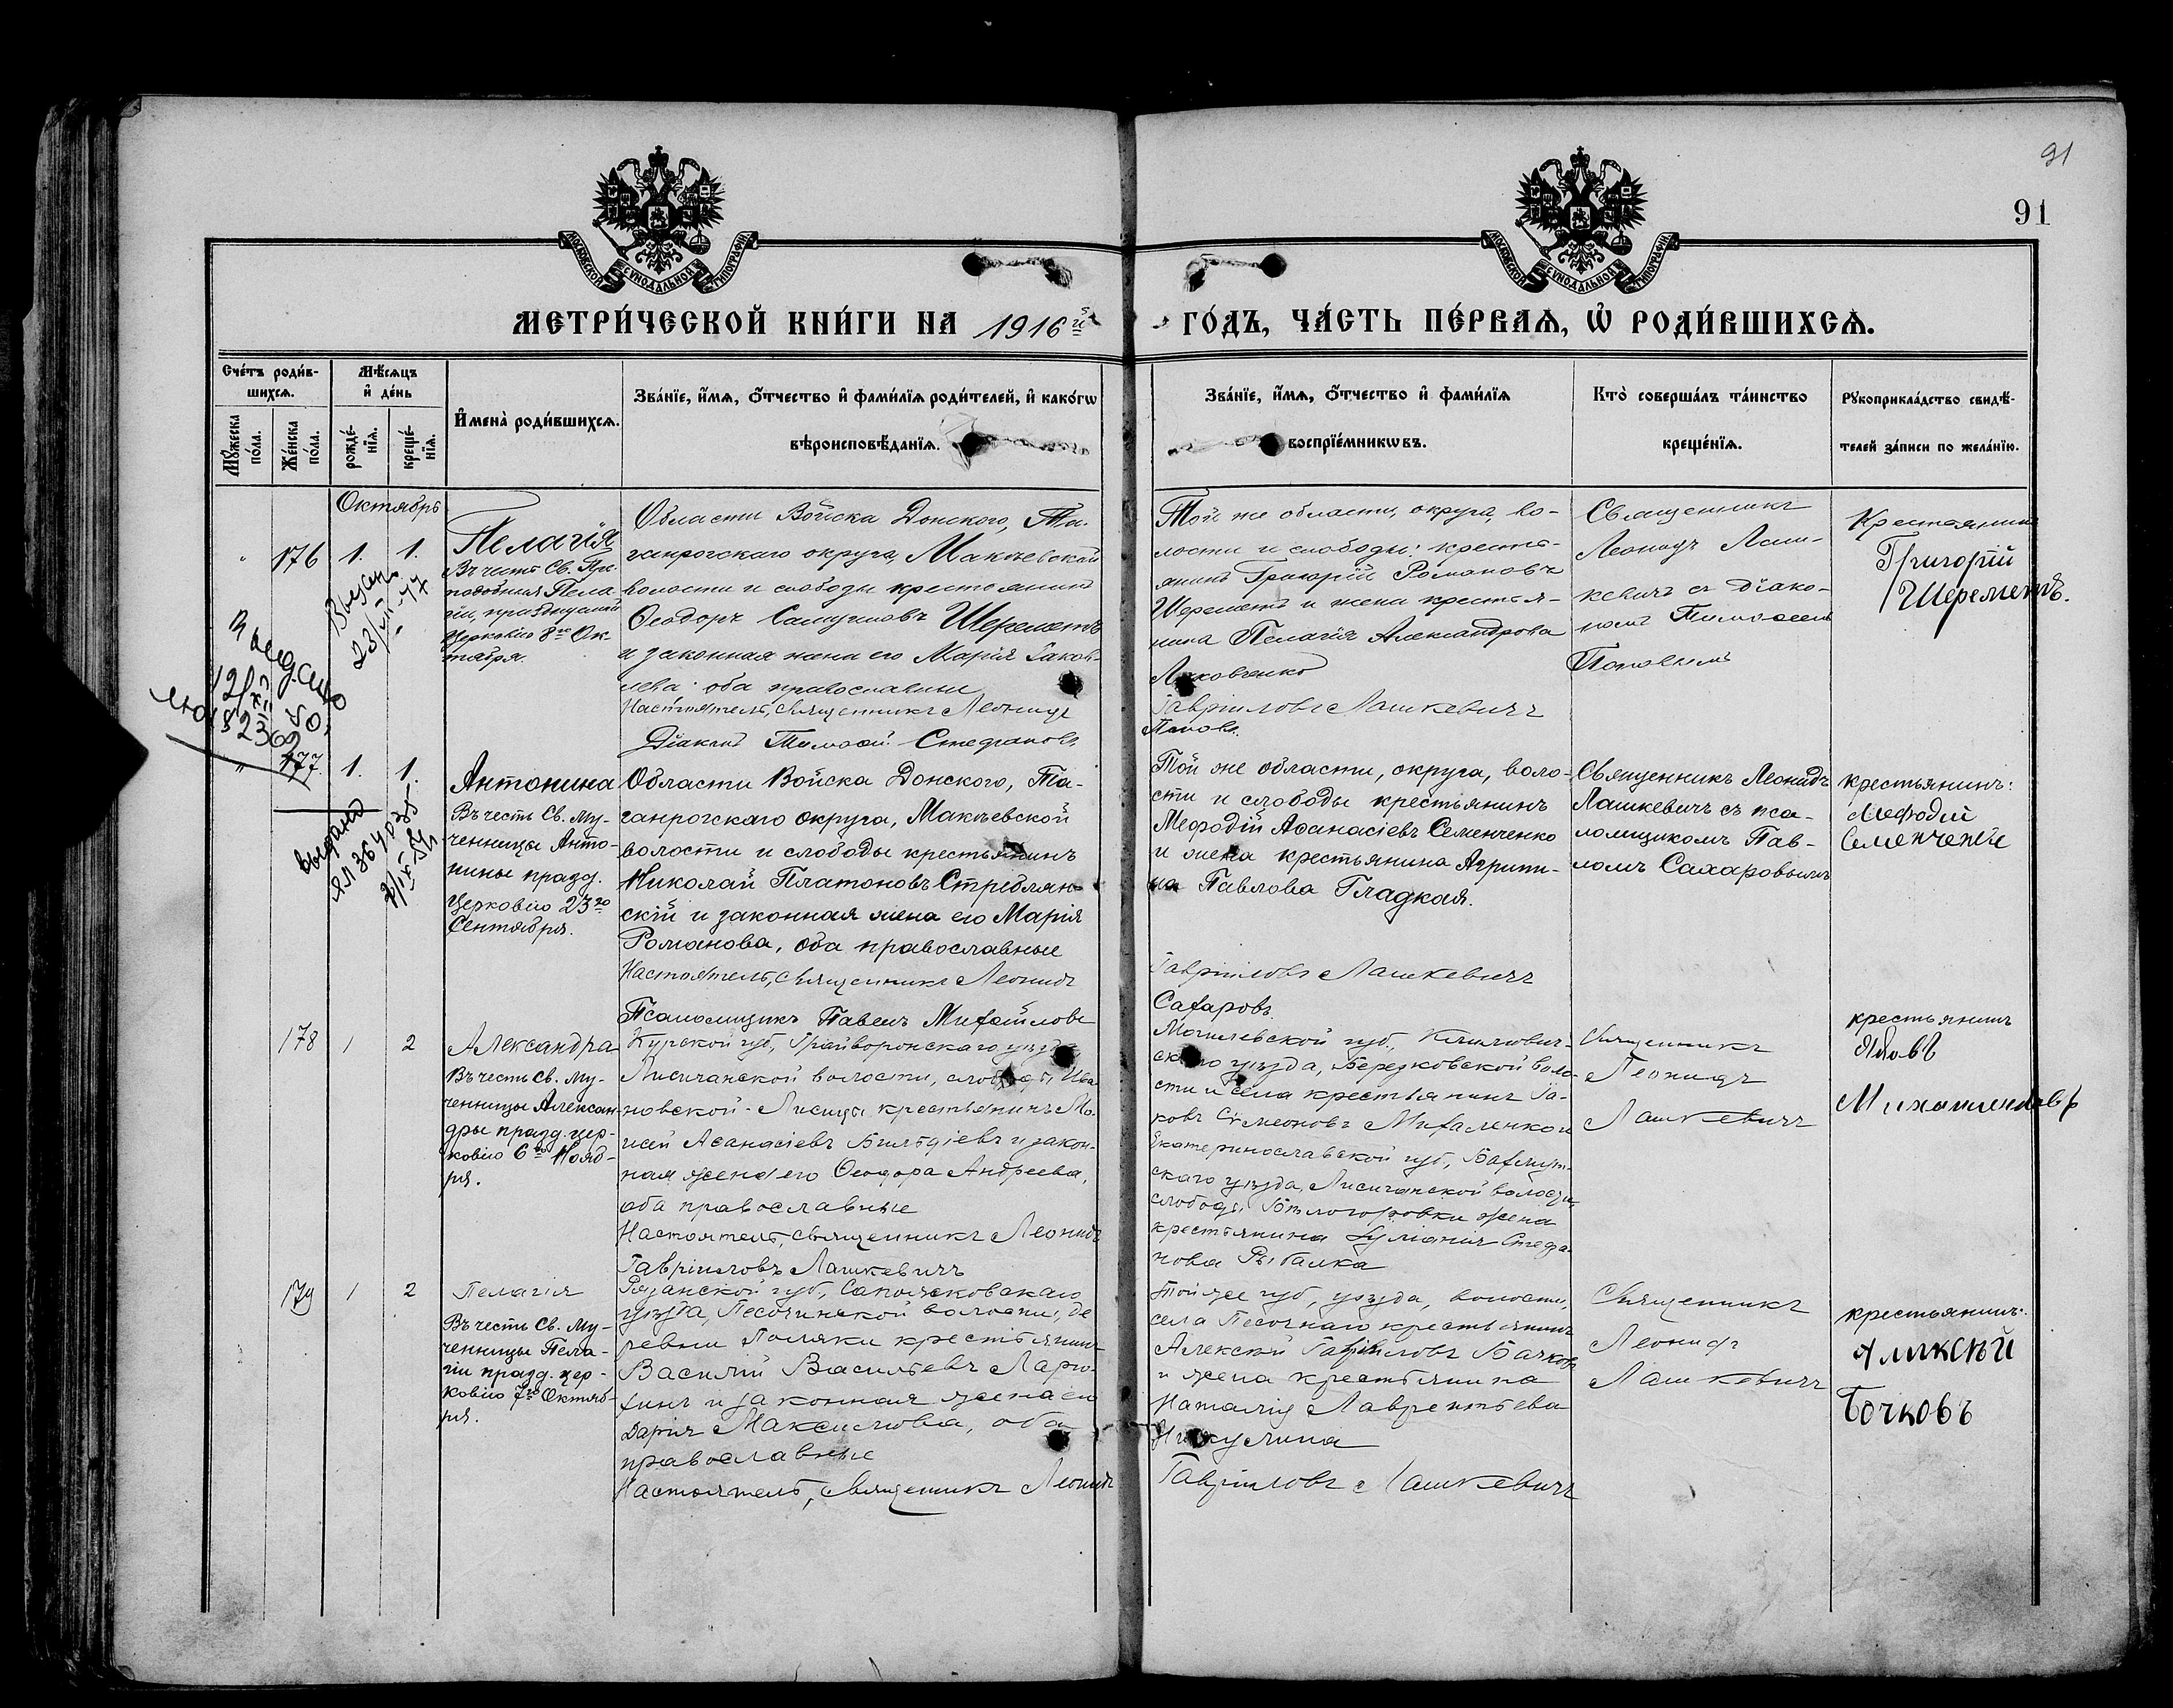 91
91
МОСКОВСКОЙ СѴНОДАЛЬНОЙ ТИПОГРАФІИ
МОСКОВСКОЙ СѴНОДАЛЬНОЙ ТИПОГРАФІИ
МЕТРИ́ЧЕСКОЙ КНИ́ГИ НА 1916 й ГО́ДЪ, ЧА́СТЬ ПЕ́РВАѦ, Ѡ҆ РОДИ́ВШИХСѦ.
Сче́тъ роди́в-
шихсѧ.
Мꙋ́жеска по́ла.
Же́нска по́ла.
Мѣ́сѧцъ
и҆ де́нь
рожде́-
нїѧ.
креще́-
нїѧ.
И҆мена̀ роди́вшихсѧ.
Зва́нїе, и҆́мѧ, ѻ҆́тчество и҆ фами́лїѧ роди́телей, и҆ како́гѡ
вѣроисповѣ́данїѧ.
Зва́нїе, и҆́мѧ, ѻ҆́тчество и҆ фами́лїѧ
воспрїе́мникѡвъ.
Кто̀ соверша́лъ та́инство
креще́нїѧ.
Рꙋкоприкла́дство свидѣ́-
телей за́писи по жела́нїю.
Октябрь
176 1. 1.
Пелагія
Въ честь Св. Пре-
подобныя Пела-
гіи, празднуемой
Церковію 8го Ок-
тября.
Области Войска Донского, Та-
ганрогскаго округа, Макѣевской
волости и слободы крестьянинъ
Ѳеодоръ Шереметъ
и законная жена его Марія Іаков-
лева оба православные
Настоятель, священникъ Леонидъ
Діаконъ Тимоѳей Стефановъ
Той же области, округа, во-
лости и слободы: кресть-
янинъ Григорій Романовъ
Шереметъ и жена крестья-
нина Пелагія Александрова
Гавріиловъ Лашкевичъ
Поповъ.
Священникъ
Леонидъ Лаш-
кевичъ съ діако-
номъ Тимоѳеемъ
Поповымъ
Крестьянинъ
Григорій
Шереметъ.
Выдано
177. 1. 1.
Антонина
Въ честь Св. Му-
ченницы Анто-
нины празд.
Церковію 23го
Сентября.
Области Войска Донского, Та-
ганрогскаго округа, Макѣевской
волости и слободы крестьянинъ
Николай Платоновъ Стреблян-
скій и законная жена его Марія
Романова, оба православные
Настоятель, священникъ Леонидъ
Псаломщикъ Павелъ Михайловъ
Той же области, округа, воло-
сти и слободы крестьянинъ
Меѳодій Аѳанасіевъ Семенченко
и жена крестьянина Агрипи-
на Павлова Гладкая.
Гавріиловъ Лашкевичъ
Сахаровъ
Священникъ Леонидъ
Лашкевичъ съ пса-
ломщикомъ Пав-
ломъ Сахаровымъ
крестьянинъ:
Мефодій
выдано
178 1 2
Александра
Въ честь Св. Му-
ченницы Алексан-
дры празд. цер-
ковію 6го Нояб-
ря.
Курской губ, Грайворонскаго уѣзда
Лисичанской волости, слободы Ива-
новской-Лисицы крестьянинъ Мо-
исей Аѳанасіевъ и закон-
ная жена его Ѳеодора Андреева,
оба православные
Настоятель, священникъ Леонидъ
Гавріиловъ Лашкевичъ
Могилевской губ.,
уѣзда, Березковской воло-
сти и села крестьянинъ Іа-
ковъ Сѵмеоновъ Михаленко и
Екатеринославской губ, Бахмут-
скаго уѣзда, Лисичанской волости,
слободы Бѣлогоровки жена
крестьянина Іуліанія Стефа-
нова Рыбалка
Священникъ
Леонидъ
Лашкевичъ
крестьянинъ
Яковъ
179 1 2
Пелагія
Въ честь Св. Му-
ченницы Пела-
гіи празд. цер-
ковію 7го Октяб-
ря.
Рязанской губ, Сапожковскаго
уѣзда, Песочинской волости, де-
ревни Поляки крестьянинъ
Василій Васильевъ Ларю-
хинъ и законная жена его
Дарія Максимова, оба
православные
Настоятель, священникъ Леонидъ
Той же губ, уѣзда, волости,
села Песочнаго крестьянинъ
Алексѣй Гавріиловъ Бочковъ
и жена крестьянина
Наталія Лаврентьева
Гавріиловъ Лашкевичъ
Священникъ
Леонидъ
Лашкевичъ
крестьянинъ:
Аликсѣй
Бочковъ